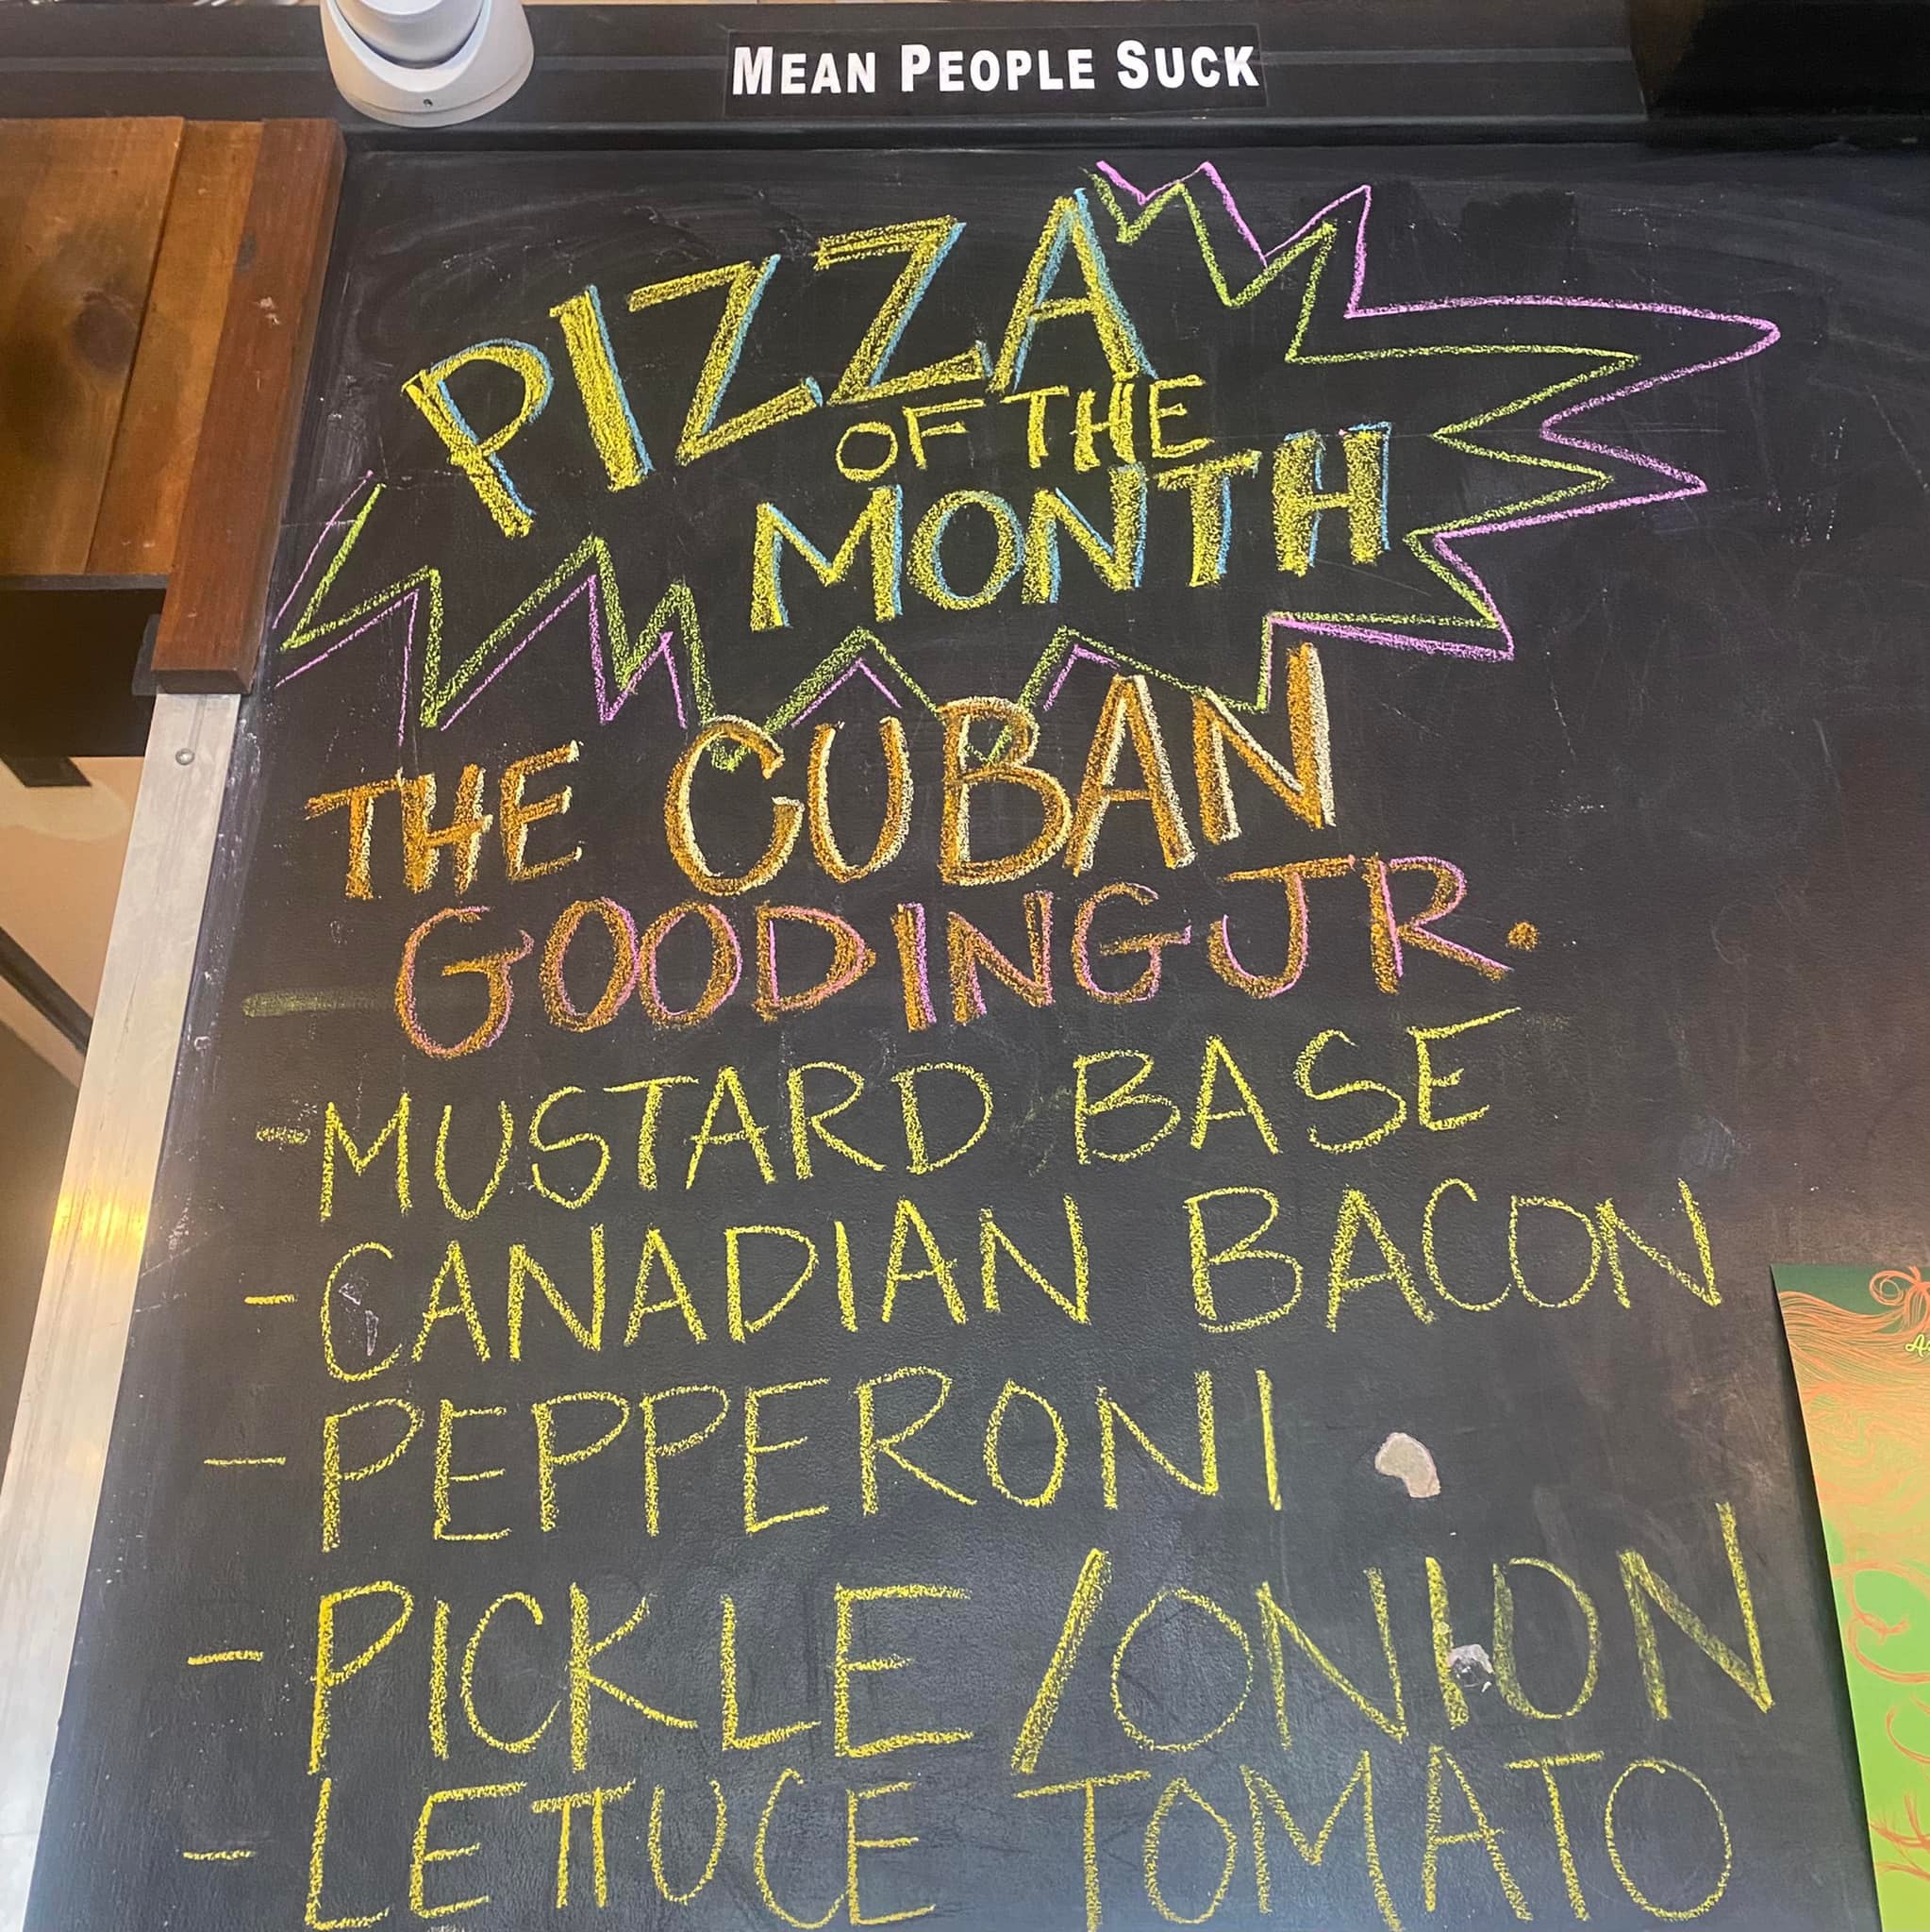 MEAN PEOPLE SUCK
PIZZA
OF THE
MONTH
THE CUBAN
GOODING JR.
- MUSTARD BASE
- CANADIAN BACON
- PEPPERONI
- PICKLE / ONION
- LETTUCE TOMATO